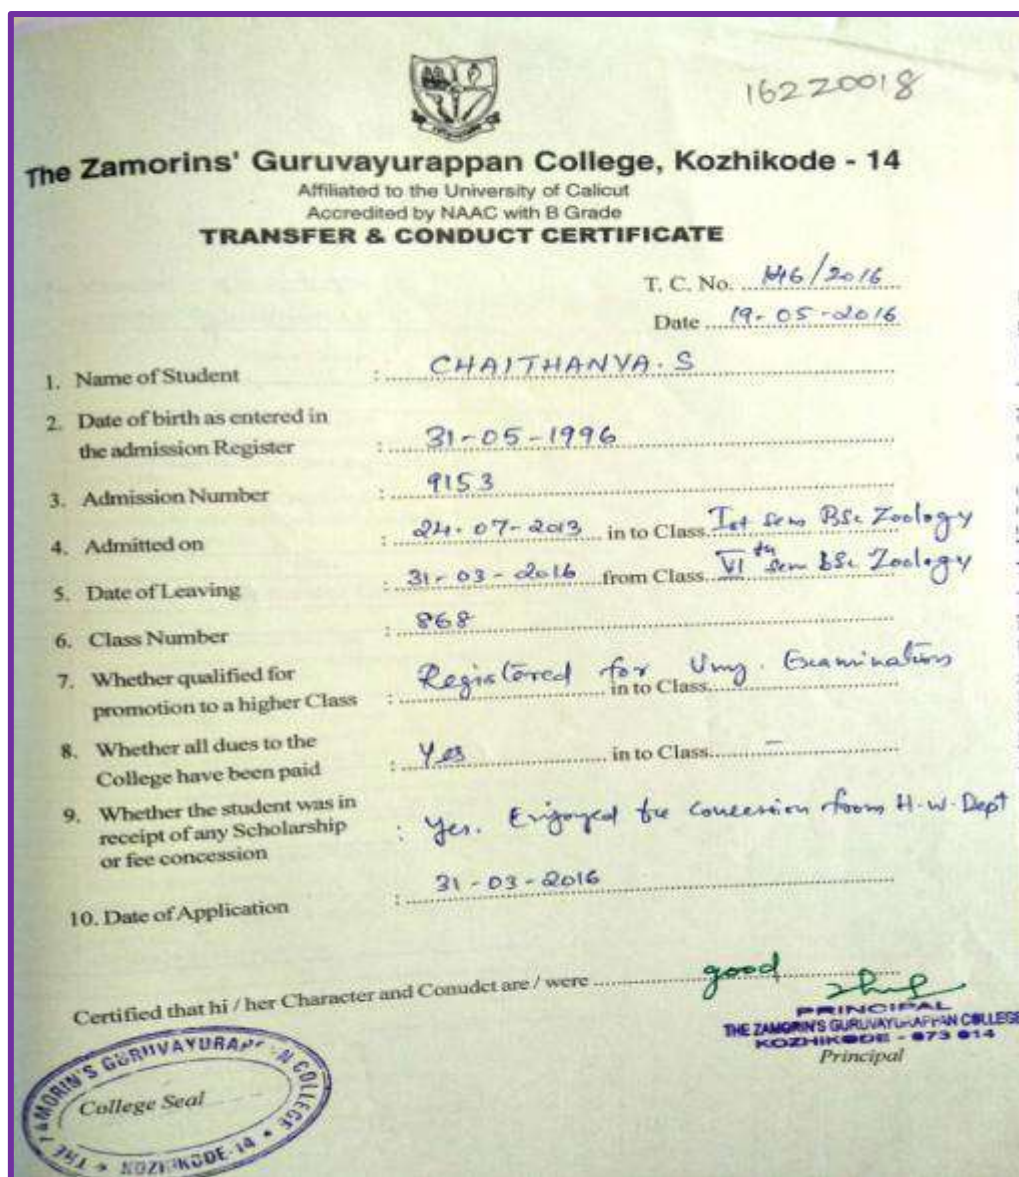 16220018
The Zamorins' Guruvayurappan College, Kozhikode - 14
Affiliated to the University of Calicut
Accredited by NAAC with B Grade
TRANSFER & CONDUCT CERTIFICATE
T. C. No. /2016
Date 19-05-2016
1. Name of Student : CHAITHANYA. S
2. Date of birth as entered in
the admission Register : 31-05-1996
3. Admission Number : 9153
4. Admitted on : 24-07-2013 in to Class Ist Sem BSc Zoology
5. Date of Leaving : 31-03-2016 from Class VIth Sem BSc Zoology
6. Class Number : 868
7. Whether qualified for
promotion to a higher Class : Registered for Examination in to Class
8. Whether all dues to the
College have been paid : Yes in to Class –
9. Whether the student was in
receipt of any Scholarship
or fee concession : Yes. Enjoyed fee concession from H.W. Dept
10. Date of Application : 31-03-2016
Certified that hi / her Character and Conudct are / were good
PRINCIPAL
THE ZAMORIN'S GURUVAYURAPPAN COLLEGE
KOZHIKODE - 673 014
Principal
THE ZAMORIN'S GURUVAYURAPPAN COLLEGE
College Seal
KOZHIKODE-14